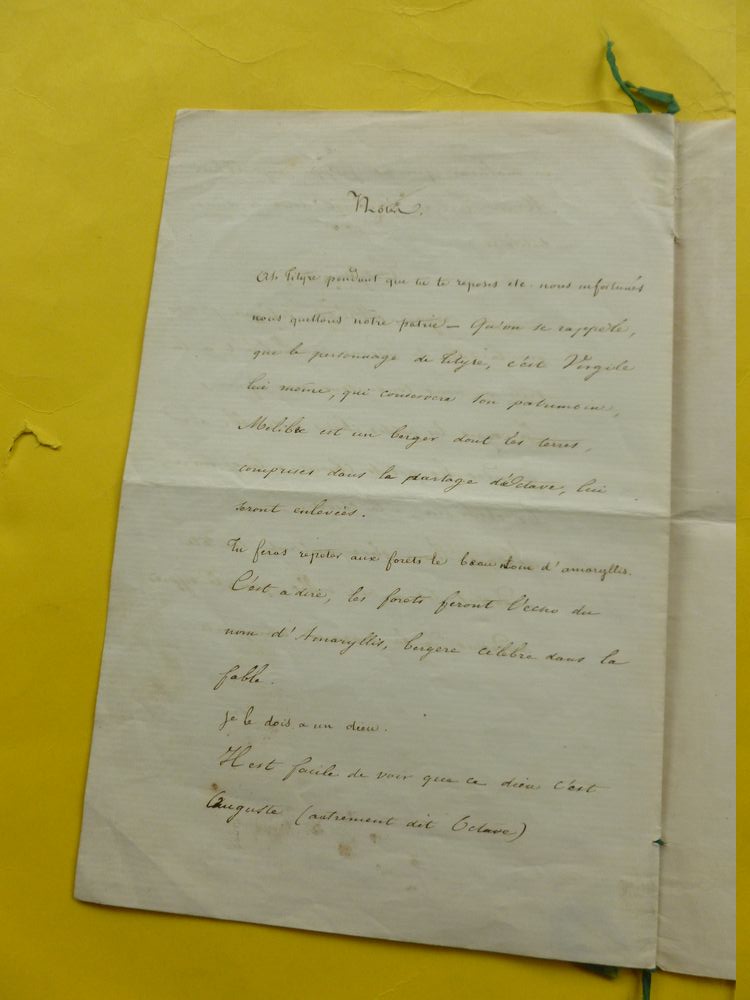 Notes.
Ah Tityre pendant que tu te reposes etc. nous infortunés
nous quittons notre patrie — Qu'on se rappèle,
que le personnage de Tityre, c'est Virgile
lui même, qui conservera son patrimoine,
Mélibée est un berger dont les terres,
comprises dans le partage d'Octave, lui
seront enlevées.
Tu feras repeter aux forets le beau nom d'amaryllis.
C'est a dire, les forêts feront l'echo du
nom d'Amaryllis, bergère célèbre dans la
fable.
je le dois a un dieu.
Il est facile de voir que ce dieu c'est
Auguste (autrement dit Octave)